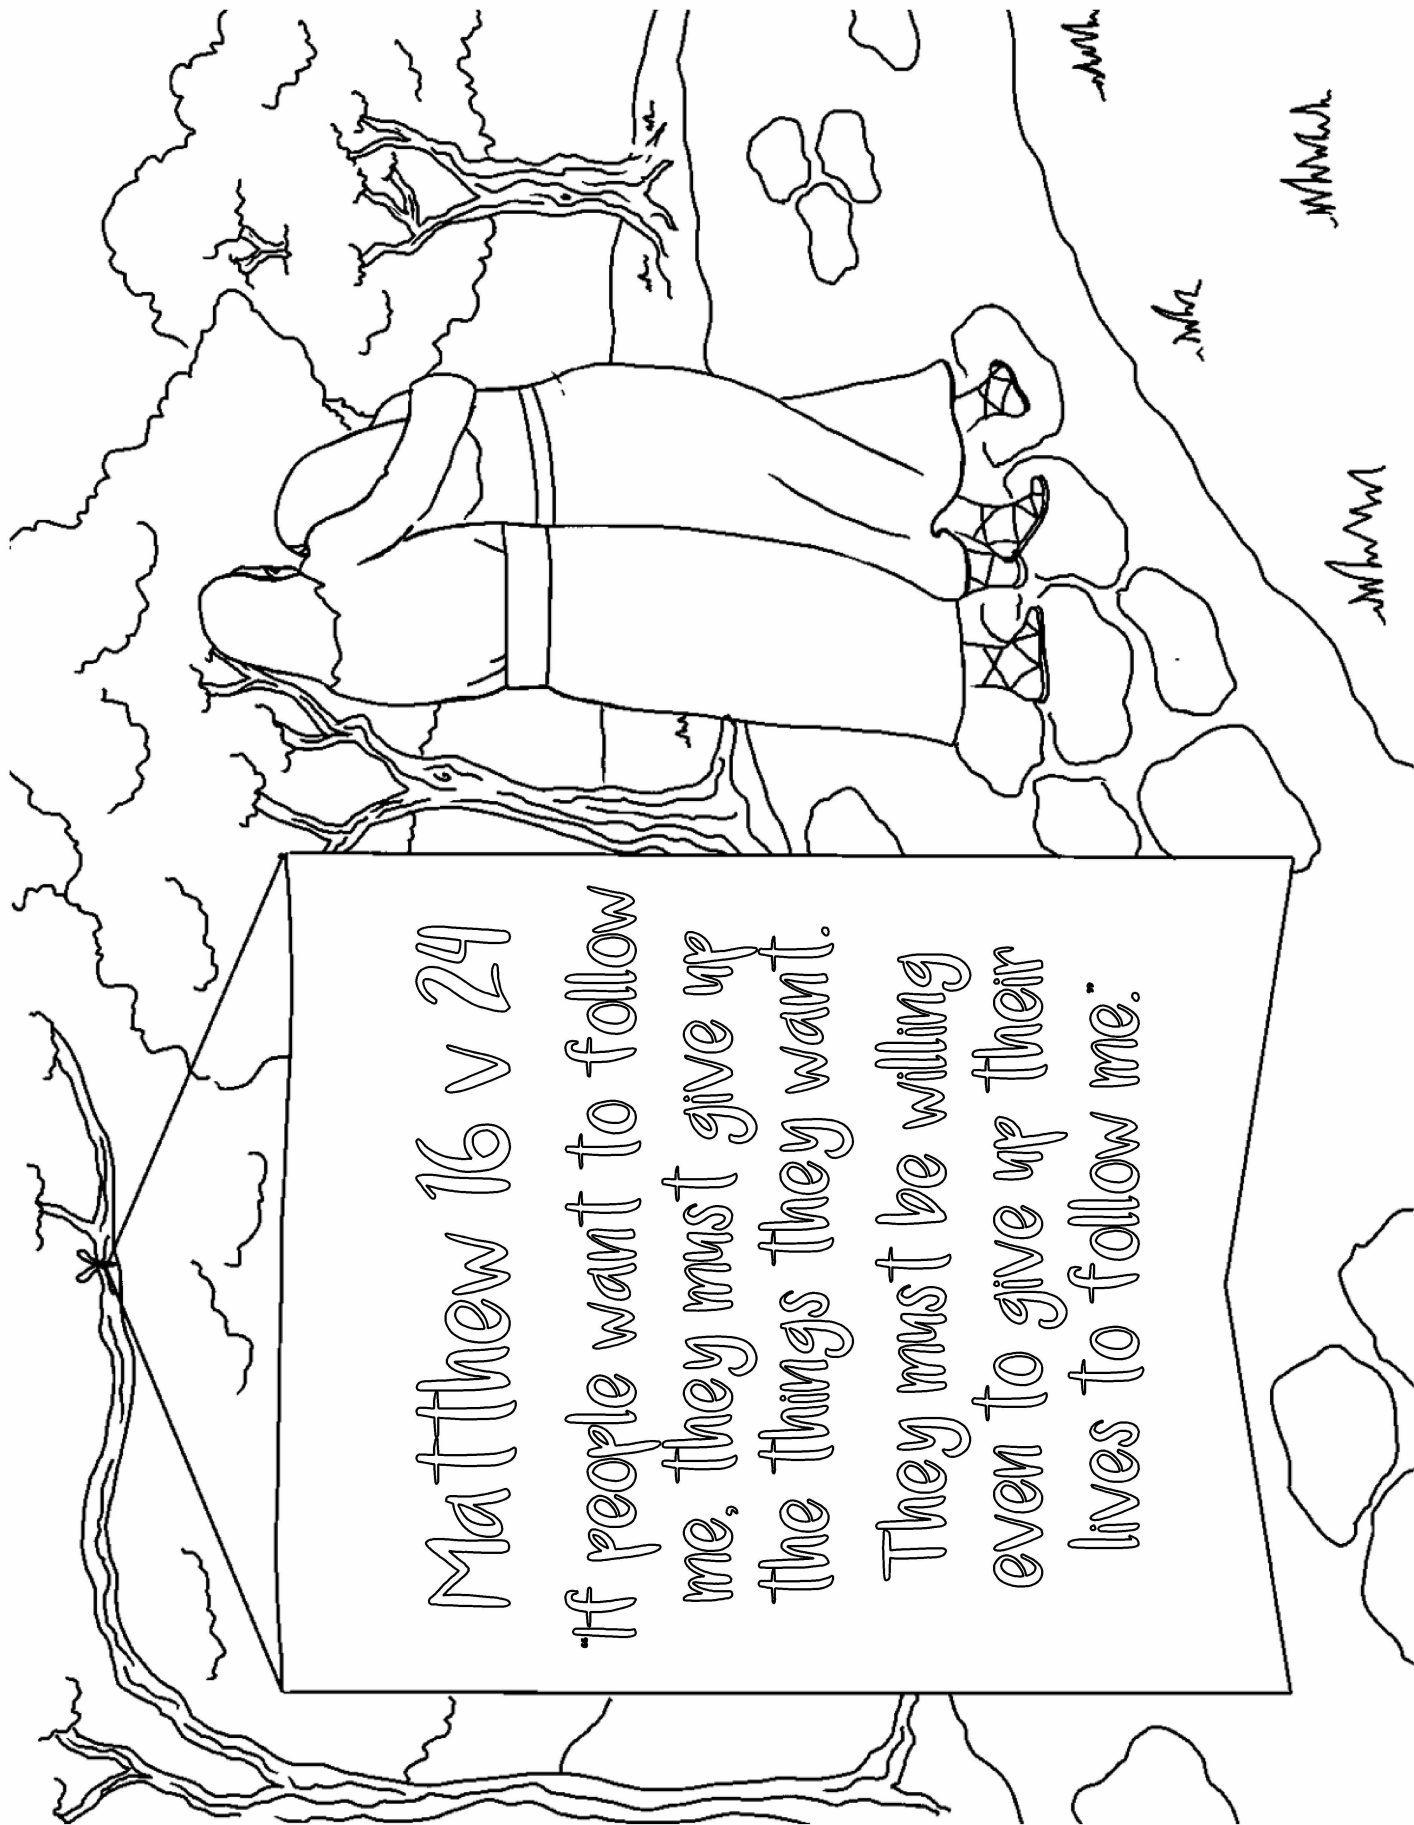 Matthew 16 v 24
"If people want to follow
me, they must give up
the things they want.
They must be willing
even to give up their
lives to follow me."